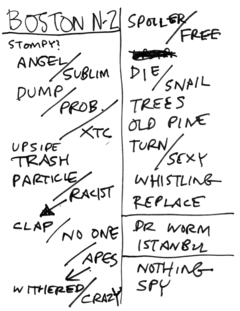 BOSTON N-2
STOMPY?
ANGEL/SUBLIM
DUMP/PROB.
/XTC
UPSIDE
TRASH
PARTICLE/RACIST
CLAP/NO ONE
/APES
WITHERED/CRAZY
SPOILER/FREE
DIE/SNAIL
TREES
OLD PINE
TURN/SEXY
WHISTLING
REPLACE
DR WORM
ISTANBUL
NOTHING
SPY